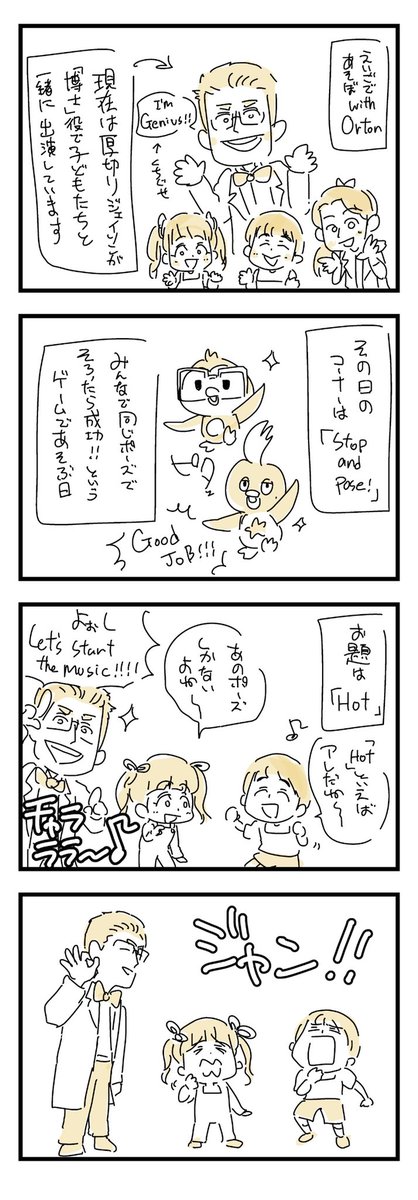 えいごで
あそぼ with
Orton
I'm
Genius!!
←くちぐせ
現在は厚切りジェイソンが
「博士」役で子どもたちと
一緒に出演しています
その日の
コーナーは
「Stop
and
Pose!」
みんなで同じポーズで
そろたら成功!!という
ゲームであそぶ日
Good
JoB!!!
お題は
「Hot」
「Hot」といえば
アレだね〜
あのポーズ
しかない
よね〜
よぉし
Let's start
the music!!!!
チャラ
ララ〜♪
ジャン!!